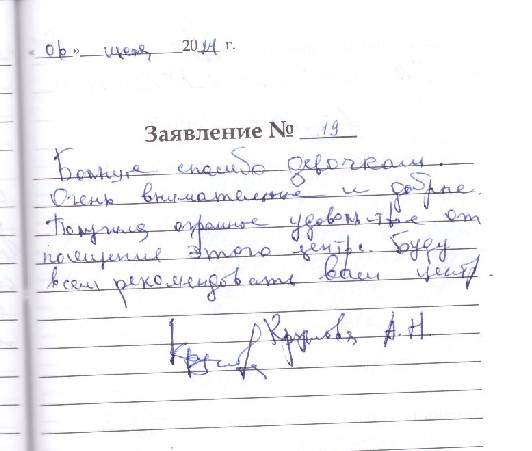 « » июля 2014 г.
Заявление № 19
Большое спасибо девочкам.
Очень внимательные и добрые.
Получила огромное удовольствие от
посещения этого центра. Буду
всем рекомендовать ваш центр.
А.Н.